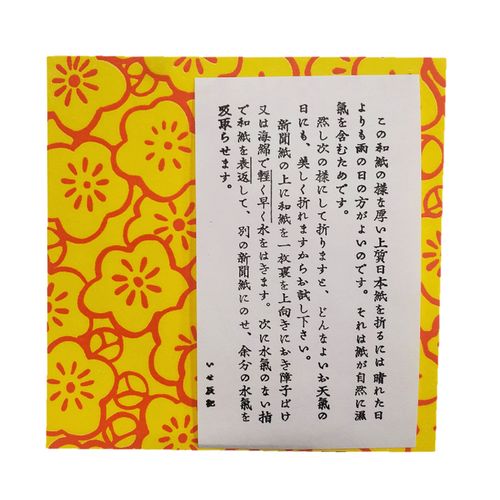 この和紙の様な厚い上質日本紙を折るには晴れた日
よりも雨の日の方がよいのです。それは紙が自然に濕
氣を含むためです。
然し次の様にして折りますと、どんなよいお天氣の
日にも、美しく折れますからお試し下さい。
新聞紙の上に和紙を一枚裏を上向きにおき障子ばけ
又は海綿で軽く早く水をはきます。次に水氣のない指
で和紙を表返して、別の新聞紙にのせ、余方の水氣を
吸取らせます。
いせ辰記